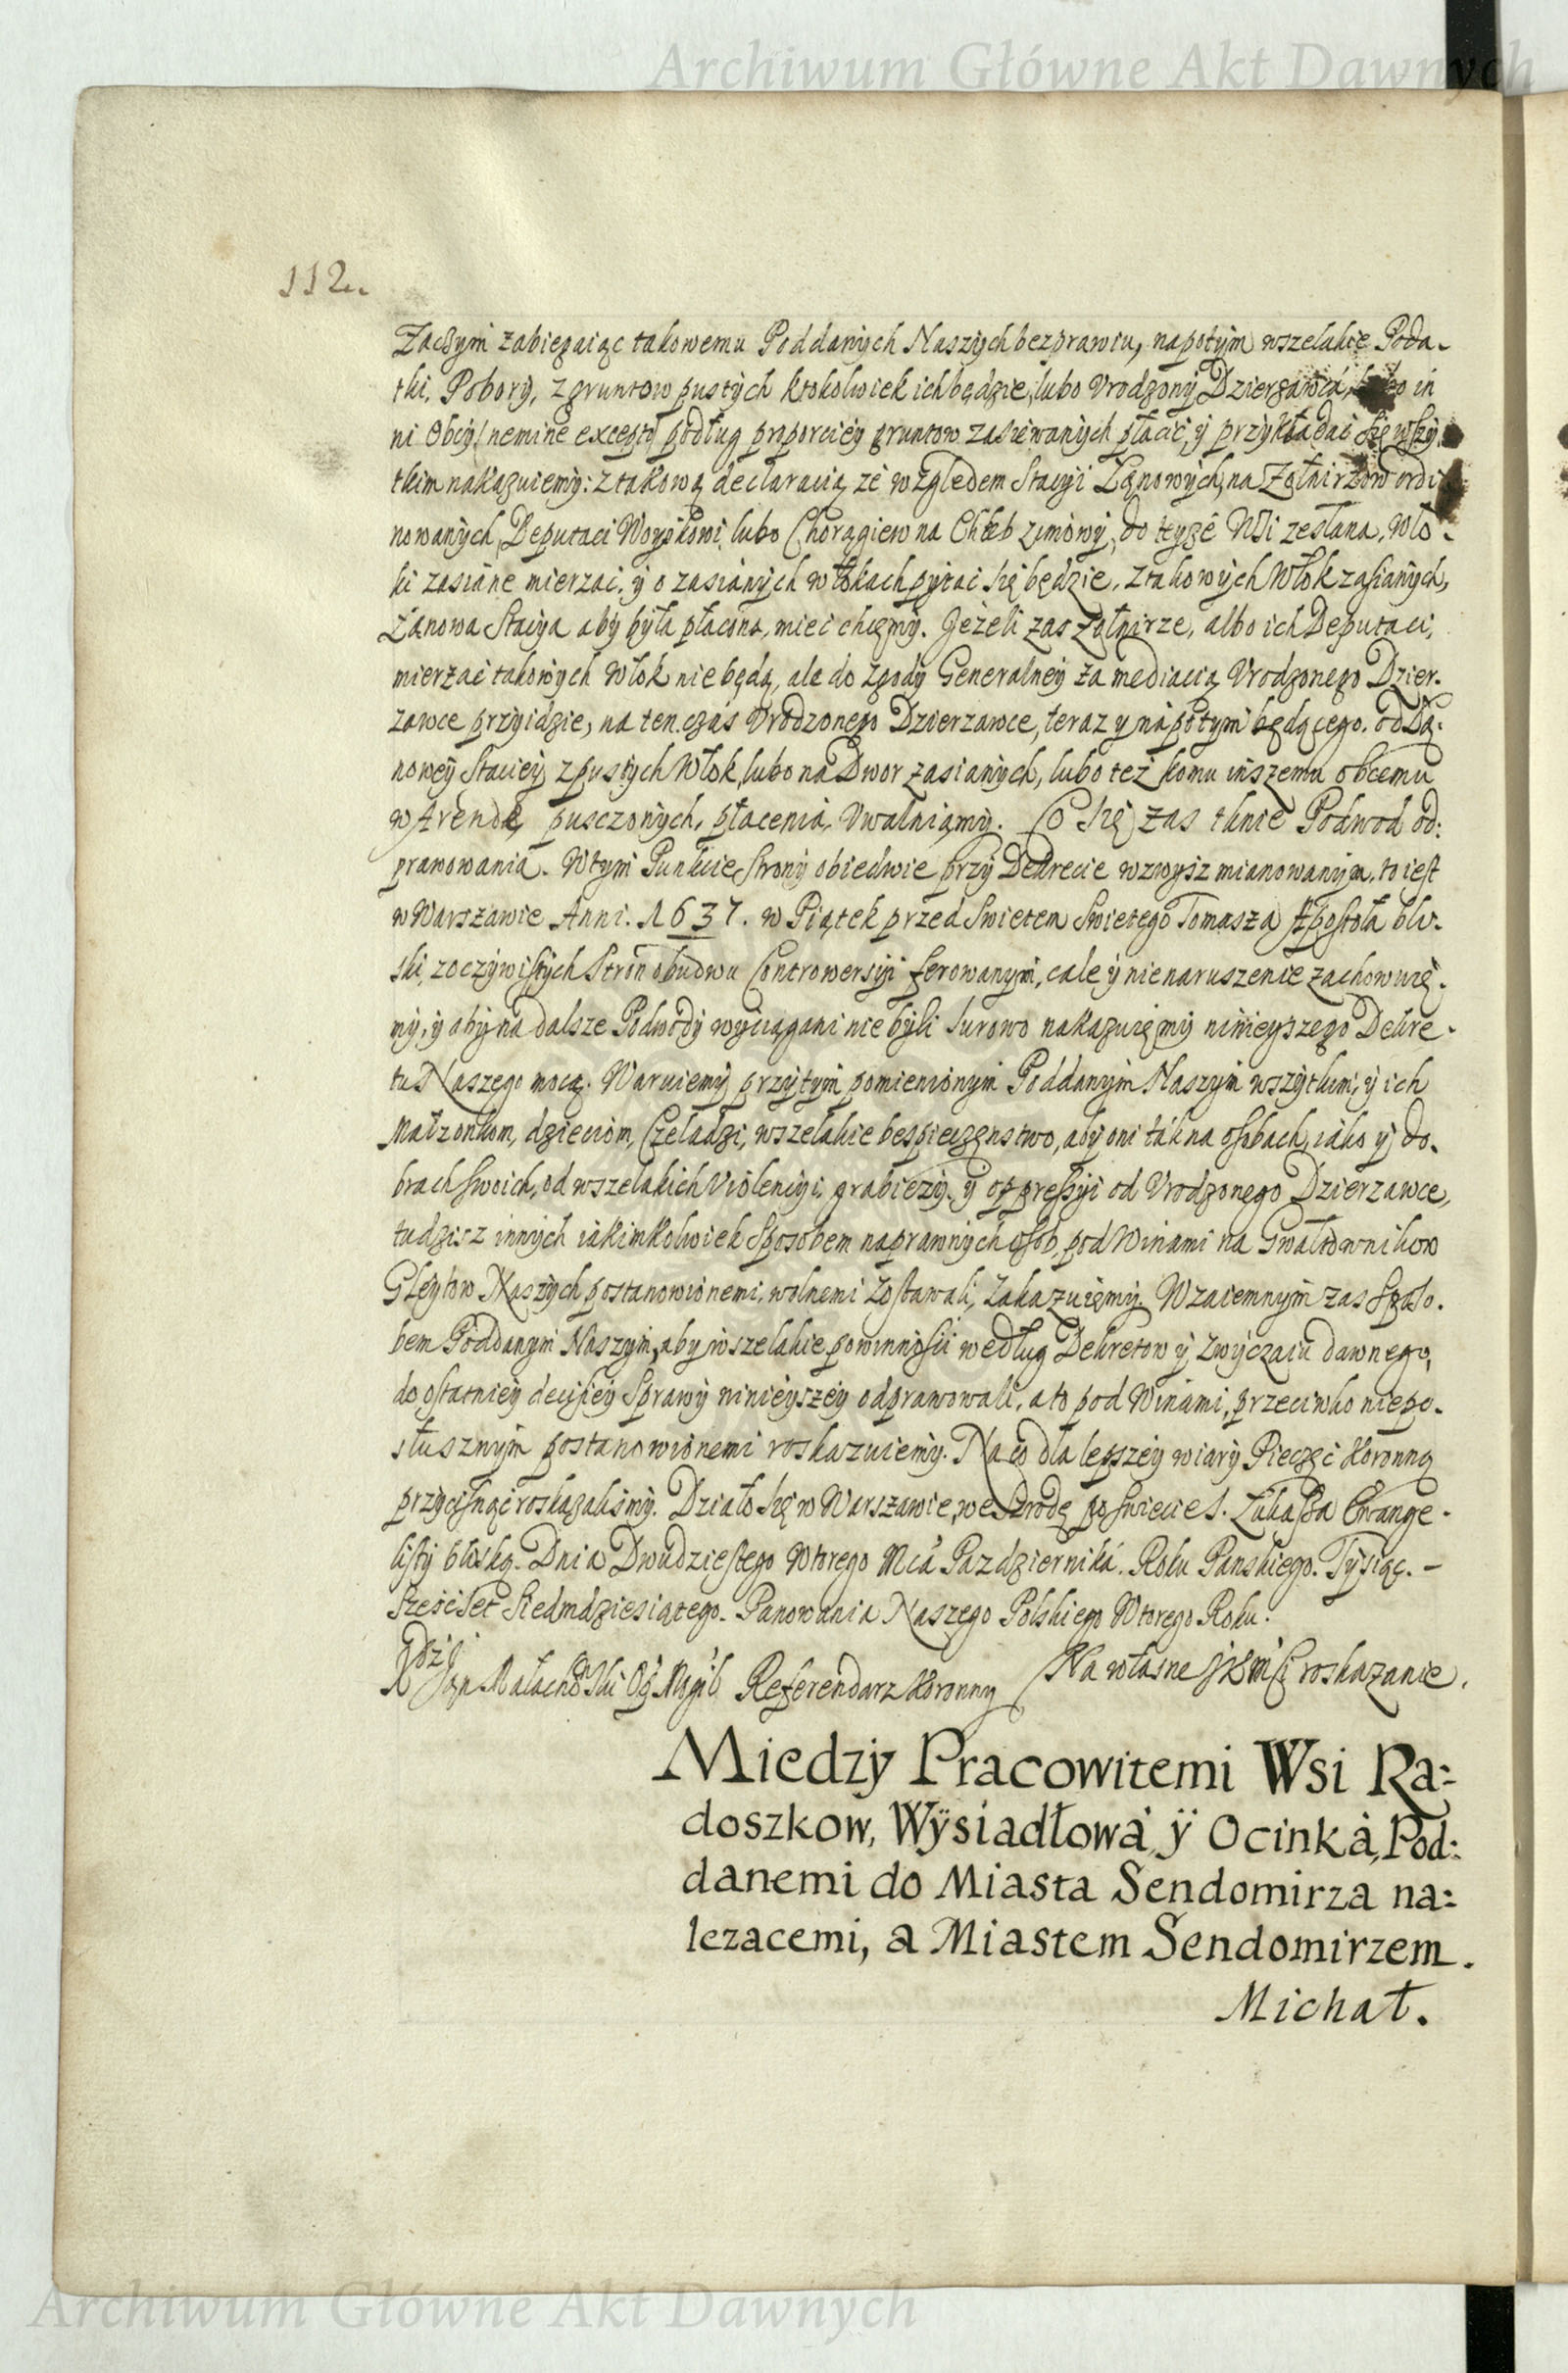 Archiwum Główne Akt Dawnych
112.
Zaczym zabiegaiąc takowemu Poddanych Naszych bezprawiu, napotym wszelakie Poda-
tki, Pobory, z gruntow pustych ktokolwiek ich będzie, lubo Vrodzony Dzierzawca, in
ni Obcy, nemine excepto, podług proporciey gruntow zasiewanych płacić, y przykładać się wszy
tkim nakazuiemy: z takową declaracią ze względem Stacyi Łanowych, na Zołnirzow ordi
nowanych, Deputaci Woyskowi, lubo Chorągiew na Chleb zimowy, do teyze Wsi zesłana, Wło-
ki zasiane mierzać, y o zasianych włokach pytać się będzie, z takowych Włok zasianych,
Łanowa Stacya aby była płacona, mieć chcęmy. Jeżeli zas Zołnirze, albo ich Deputaci,
mierzać takowych Włok nie będą, ale do zgody Generalney za mediacią Vrodzonego Dzier-
zawce przyidzie, na ten czas Vrodzonego Dzierzawce, teraz y napotym będącego. od Ła-
nowey Staciey z pustych Włok, lubo na Dwor zasianych, lubo też komu inszemu obcemu
w Arendę pusczonych, płacenia, Vwalniamy. Co się zas tknie Podwod od:
prawowania. W tym Punkcie Strony obiedwie przy Dekrecie wzwysz mianowanym, to iest
w Warszawie Anni. 1637. w Piątek przed Swietem Swietego Tomasza Apostoła bli-
ski, z oczywistych Stron obudwu Controwersyi ferowanym, cale y nienaruszenie zachowuię-
my, y aby na dalsze Podwody wyciągani nie byli surowo nakazuięmy ninieyszego Dekre-
tu Naszego mocą. Waruiemy przytym pomienionym Poddanym Naszym wszytkim, y ich
Małzonkom, dzieciom, Czeladzi, wszelakie bespieczęnstwo, aby oni ták na osobach, iako y do-
brach swoich, od wszelakich Violencyi, grabiezy, y oppressyi od Vrodzonego Dzierzawce,
tudzisz innych iakimkolwiek sposobem naprawnych osob, pod Winami na Gwałtownikow
Gleytow Naszych postanowionemi, wolnemi zostawali, zakazuięmy. Wzaiemnym zas Sposo-
bem Poddanym Naszym, aby wszelakie powinnosci według Dekretow y zwyczaiu dawnego,
do ostatniey decisiey Sprawy ninieyszey odprawowali, a to pod Winami, przeciwko niepo-
słusznym postanowionemi roskazuiemy. Na co dla lepszey wiary Pieczęć Koronną
przycisnąć roskazalismy. Działo się w Warszawie, we Szrodę po swiecie S. Łukasza Ewange-
listy bliską. Dnia Dwudziestego Wtorego Mca Pazdziernika. Roku Panskiego. Tysiąc. -
Sześćset Siedmdziesiątego. Panowania Naszego Polskiego Wtorego Roku.
X Jan Małachowski Referendarz Koronny Na własne roskazanie.
Miedzy Pracowitemi Wsi Ra:
doszkow, Wysiadłowa y Ocinka, Pod:
danemi do Miasta Sendomirza na:
lezacemi, a Miastem Sendomirzem.
Michał.
Archiwum Główne Akt Dawnych